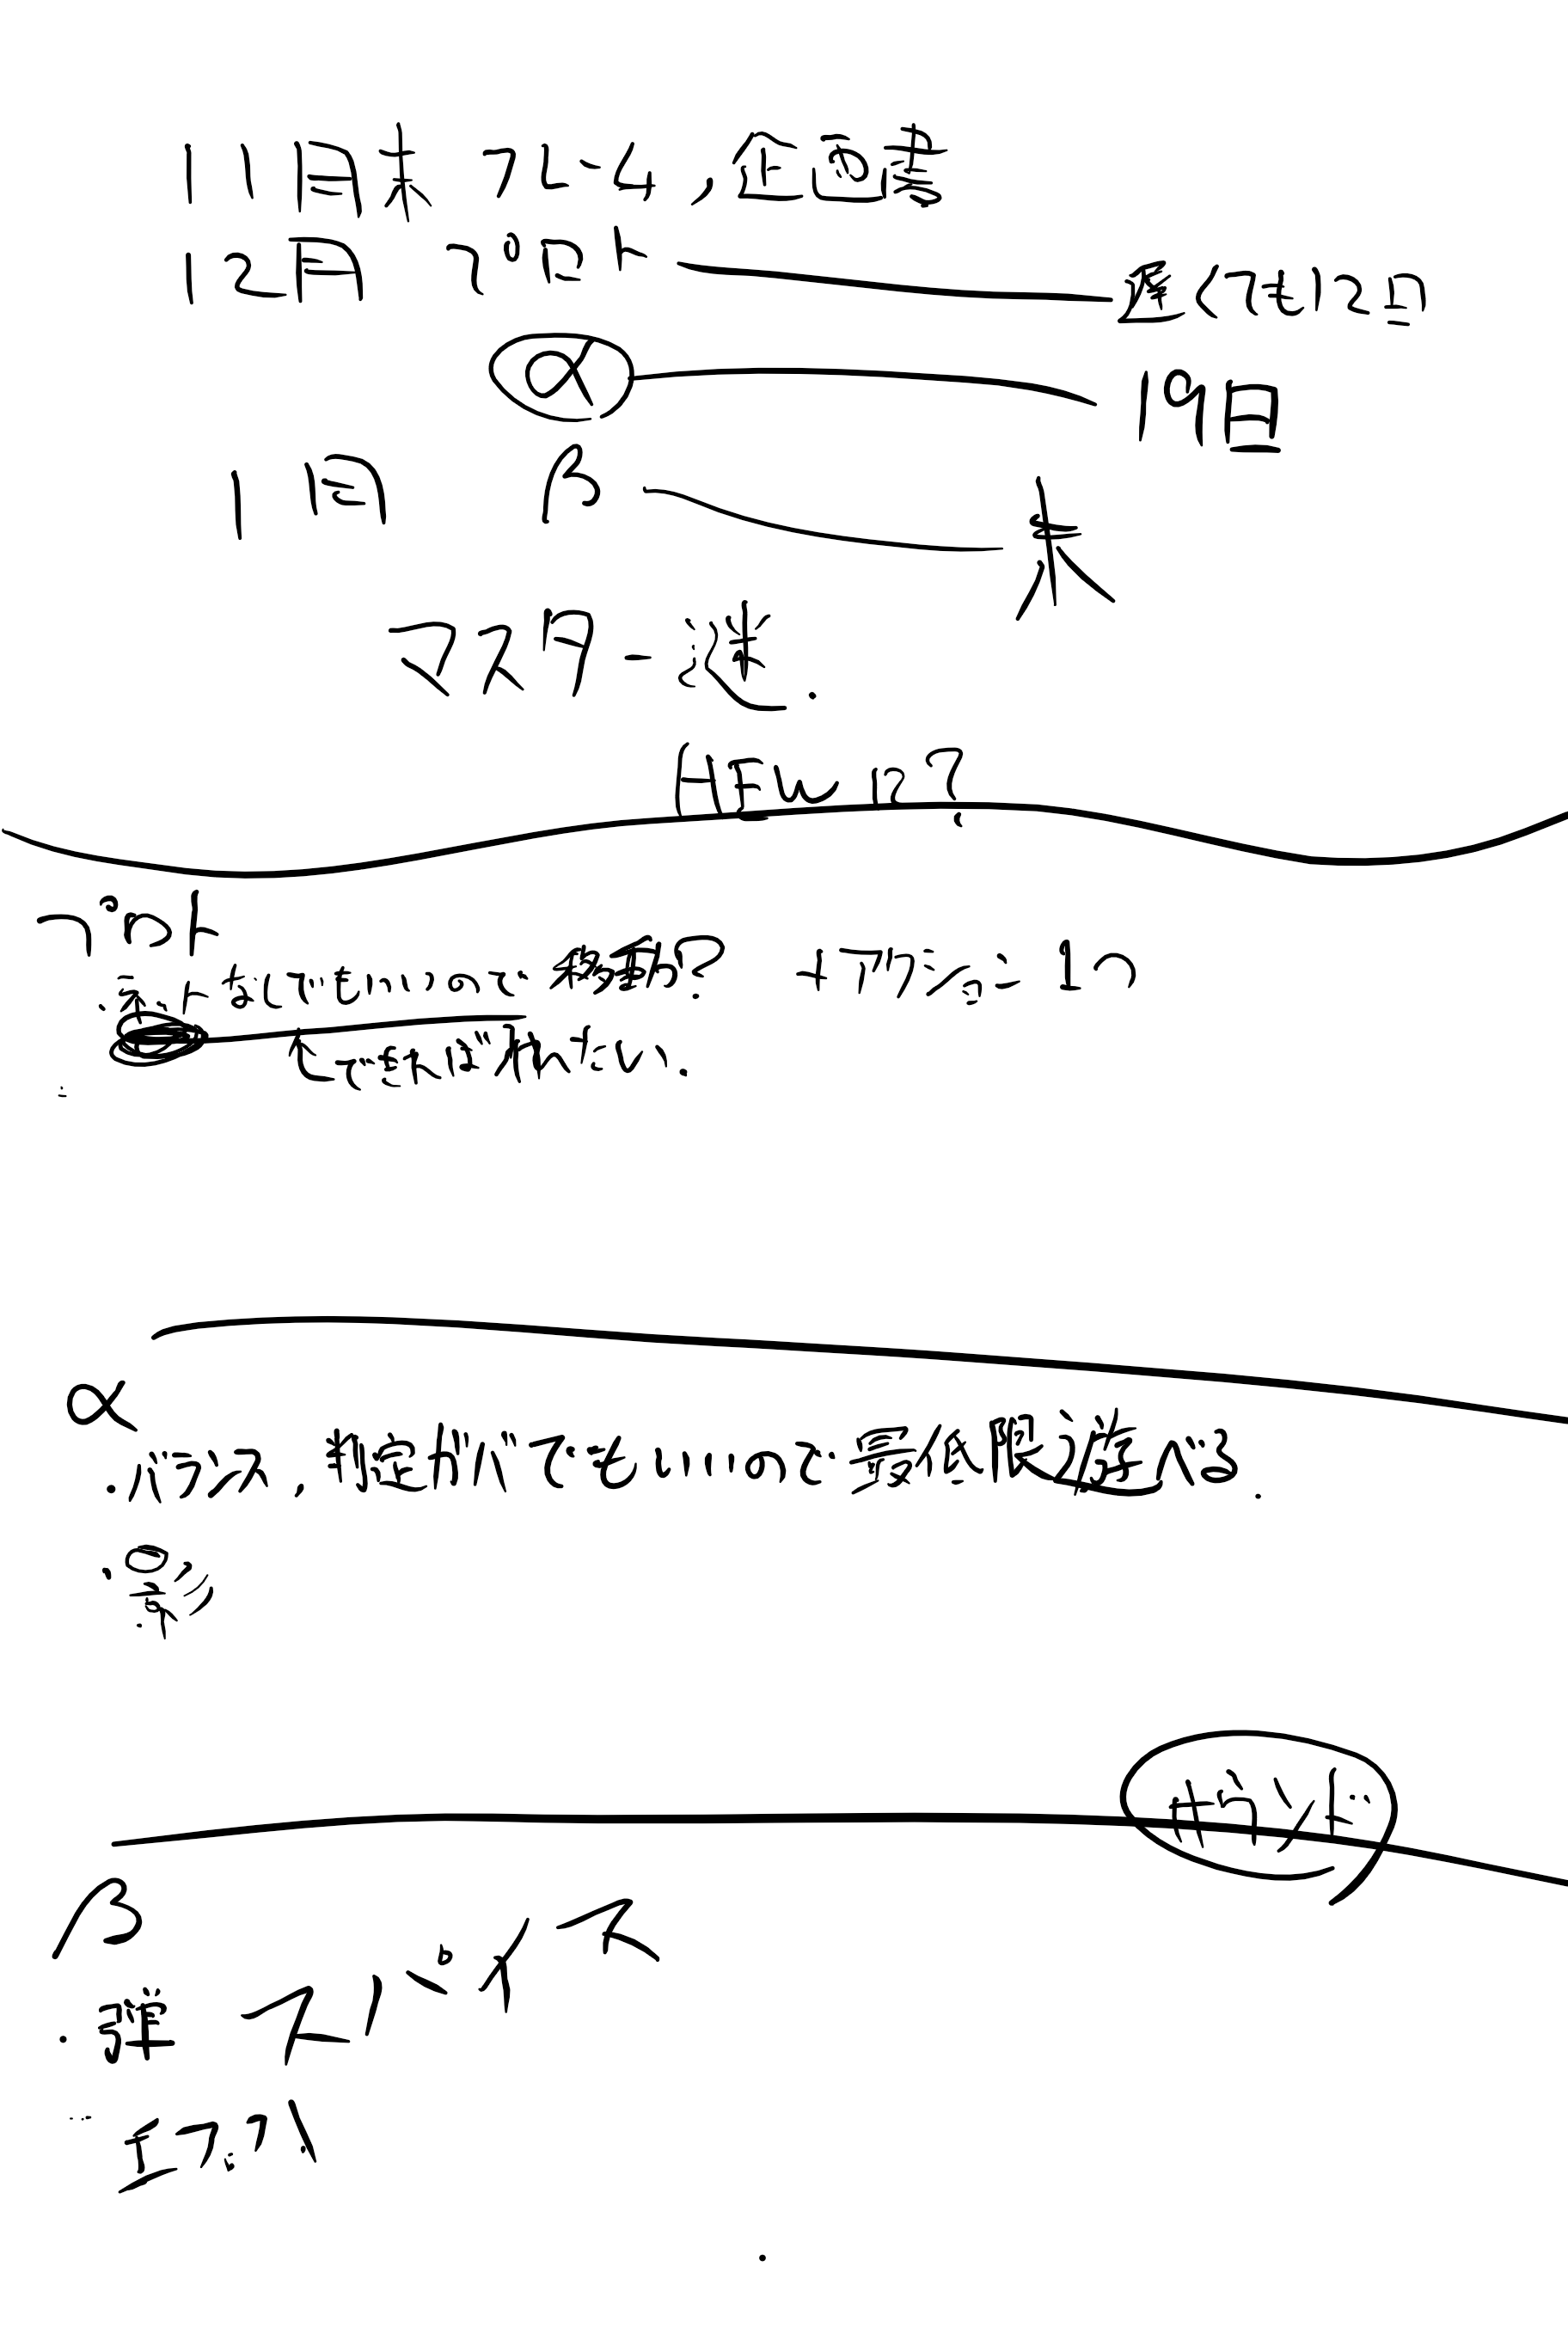 11月末 フレーム,企画書
12月 プロト 遅くても12日
α 19日
1月 β 末
マスター 迷.
HEW 12?
プロト
・ なしでもいいので 移動? +アクション1つ
できればいれたい.
α
・バース. 敵がでてもいいので 最後 迄 遊べる.
・影
ボランド
β
・弾 スパイス
エフ